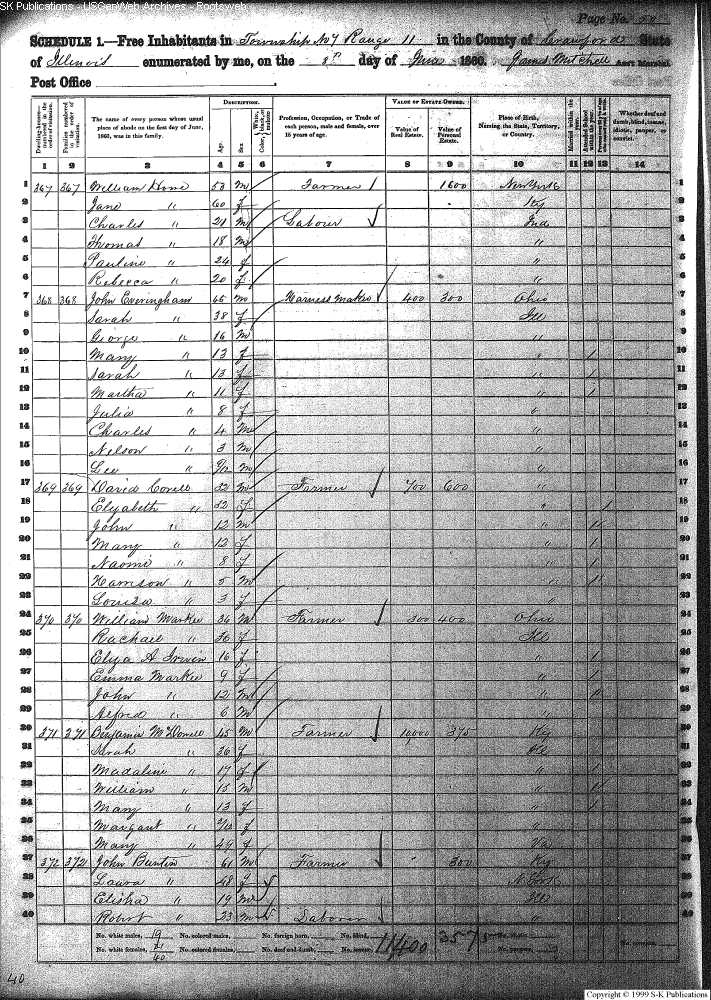 SK Publications - USGenWeb Archives - Rootsweb
Page No. 50
SCHEDULE 1.—Free Inhabitants in Township No 7 Range 11 in the County of Crawford State
of Illinois enumerated by me, on the day of June 1860. James Mitchell Ass't Marshal.
Post Office
Dwelling-houses—numbered in the order of visitation.
Families numbered in the order of visitation.
The name of every person whose usual place of abode on the first day of June, 1860, was in this family.
DESCRIPTION.
Age.
Sex.
Color, White, black, or mulatto
Profession, Occupation, or Trade of each person, male and female, over 15 years of age.
VALUE OF ESTATE OWNED.
Value of Real Estate.
Value of Personal Estate.
Place of Birth, Naming the State, Territory, or Country.
Married within the year.
Attended School within the year.
Whether deaf and dumb, blind, insane, idiotic, pauper, or convict.
1 2 3 4 5 6 7 8 9 10 11 12 13 14
1 367 367 William 53 m Farmer 1600 New York 1
2 Jane " 60 f Ky 2
3 Charles " 21 m Labourer Ind 3
4 Thomas " 18 m " 4
5 Pauline " 24 f " 5
6 Rebecca " 20 f " 6
7 368 368 John Everingham 45 m Harness Maker 400 300 Ohio 7
8 Sarah " 38 f Ill 8
9 George " 16 m " 9
10 Mary " 13 f " 1 10
11 Sarah " 13 f " 1 11
12 Martha " 11 f " 1 12
13 Julia " 8 f " 13
14 Charles " 4 m " 14
15 Nelson " 3 m " 15
16 Lee " m " 16
17 369 369 David Covell 32 m Farmer 700 600 " 17
18 Elizabeth " 32 f " 1 18
19 John " 12 m " 1 19
20 Mary " 12 f " 1 20
21 Naomi " 8 f " 1 21
22 Harrison " 5 m " 1 22
23 Louisa " 3 f " 23
24 370 370 William Markee 36 m Farmer 300 400 Ohio 24
25 Rachael " 30 f Ill 25
26 Eliza A Irwin 16 f " 1 26
27 Emma Markee 9 f " 1 27
28 John " 12 m " 1 28
29 Alfred " 6 m " 29
30 371 371 Benjamin McDowell 45 m Farmer 10,000 375 Ky 30
31 Sarah " 36 f Ill 31
32 Madaline " 17 f " 1 32
33 William " 15 m " 1 33
34 Mary " 13 f " 1 34
35 Margaret " f " 35
36 Mary " 49 f Va 36
37 372 372 John Buntin 61 m Farmer " 300 Ky 37
38 Laura " 48 f N York 38
39 Elisha " 19 m Ill 39
40 Robert " 23 m Labourer " 40
No. white males, 19 No. colored males, No. foreign born, No. blind, 11400 3575
No. white females, 21 No. colored females, No. deaf and dumb, No. insane,
40
40
Copyright © 1999 S-K Publications